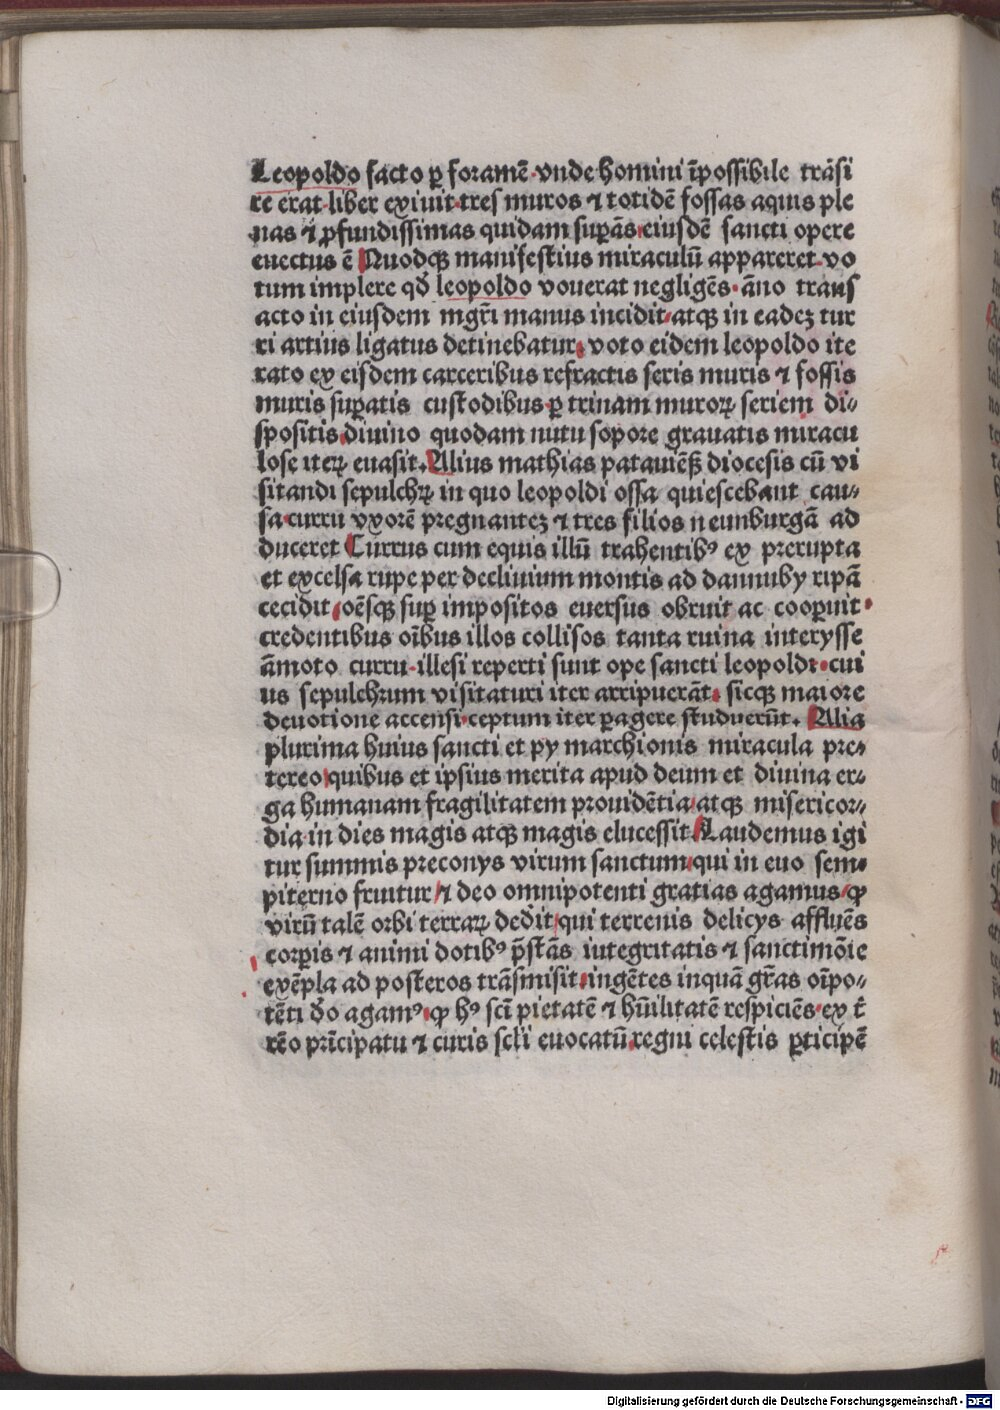 Leopoldo facto ꝑ foramē·vnde homini īpossibile trāsi
re erat·liber exiuit·tres muros ⁊ totidē fossas aquis ple
nas ⁊ ꝓfundissimas quidam suꝑās eiusdē sancti opere
euectus ē Quodqꝫ manifestius miraculū appareret·vo
tum implere qđ leopoldo vouerat negligēs·āno trans
acto in eiusdem mgr̄i manus incidit/atqꝫ in eadeꝫ tur
ri artius ligatus detinebatur/voto eidem leopoldo ite
rato ex eisdem carceribus refractis seris muris ⁊ fossis
muris suꝑatis custodibus·ꝑ trinam muroꝝ seriem di⸗
spositis/diuino quodam nutu sopore grauatis miracu
lose iteꝝ euasit. Alius mathias patauiēß diocesis cū vi
sitandi sepulchꝝ in quo leopoldi ossa quiescebant cau⸗
sa curru vxorē pregnanteꝫ ⁊ tres filios neunburgā ad
duceret Currus cum equis illū trahentibꝰ ex prerupta
et excelsa rupe per decliuium montis ad dannuby ripā
cecidit/oēsqꝫ suꝑ impositos euersus obruit ac cooꝑuit·
credentibus oībus illos collisos tanta ruina interysse
āmoto curru·illesi reperti sunt ope sancti leopoldi·cui
us sepulchrum visitaturi iter arripuerāt/ sicqꝫ maiore
deuotione accensi·ceptum iter ꝑagere studuerūt. Alia
plurima huius sancti et py marchionis miracula pre⸗
tereo/quibus et ipsius merita apud deum et diuina er⸗
ga humanam fragilitatem prouidētia/atqꝫ misericor⸗
dia·in dies magis atqꝫ magis elucessit Laudemus igi
tur summis preconys virum sanctum/qui in euo sem⸗
piterno fruitur/⁊ deo omnipotenti gratias agamus/ꝙ
virū talē orbi terraꝝ dedit/qui terrenis delicys affluēs
corꝑis ⁊ animi dotibꝰ p̄stās integritatis ⁊ sanctimōie
exēpla ad posteros trāsmisit/ingētes inquā gr̄as oīpo⸗
tēti đo agamꝰ/ꝙ hꝰ scī pietatē ⁊ hūilitatē respiciēs·ex t̄
rēo prīcipatu ⁊ curis scłi euocatū/regni celestis ꝑticipē
Digitalisierung gefördert durch die Deutsche Forschungsgemeinschaft - DFG